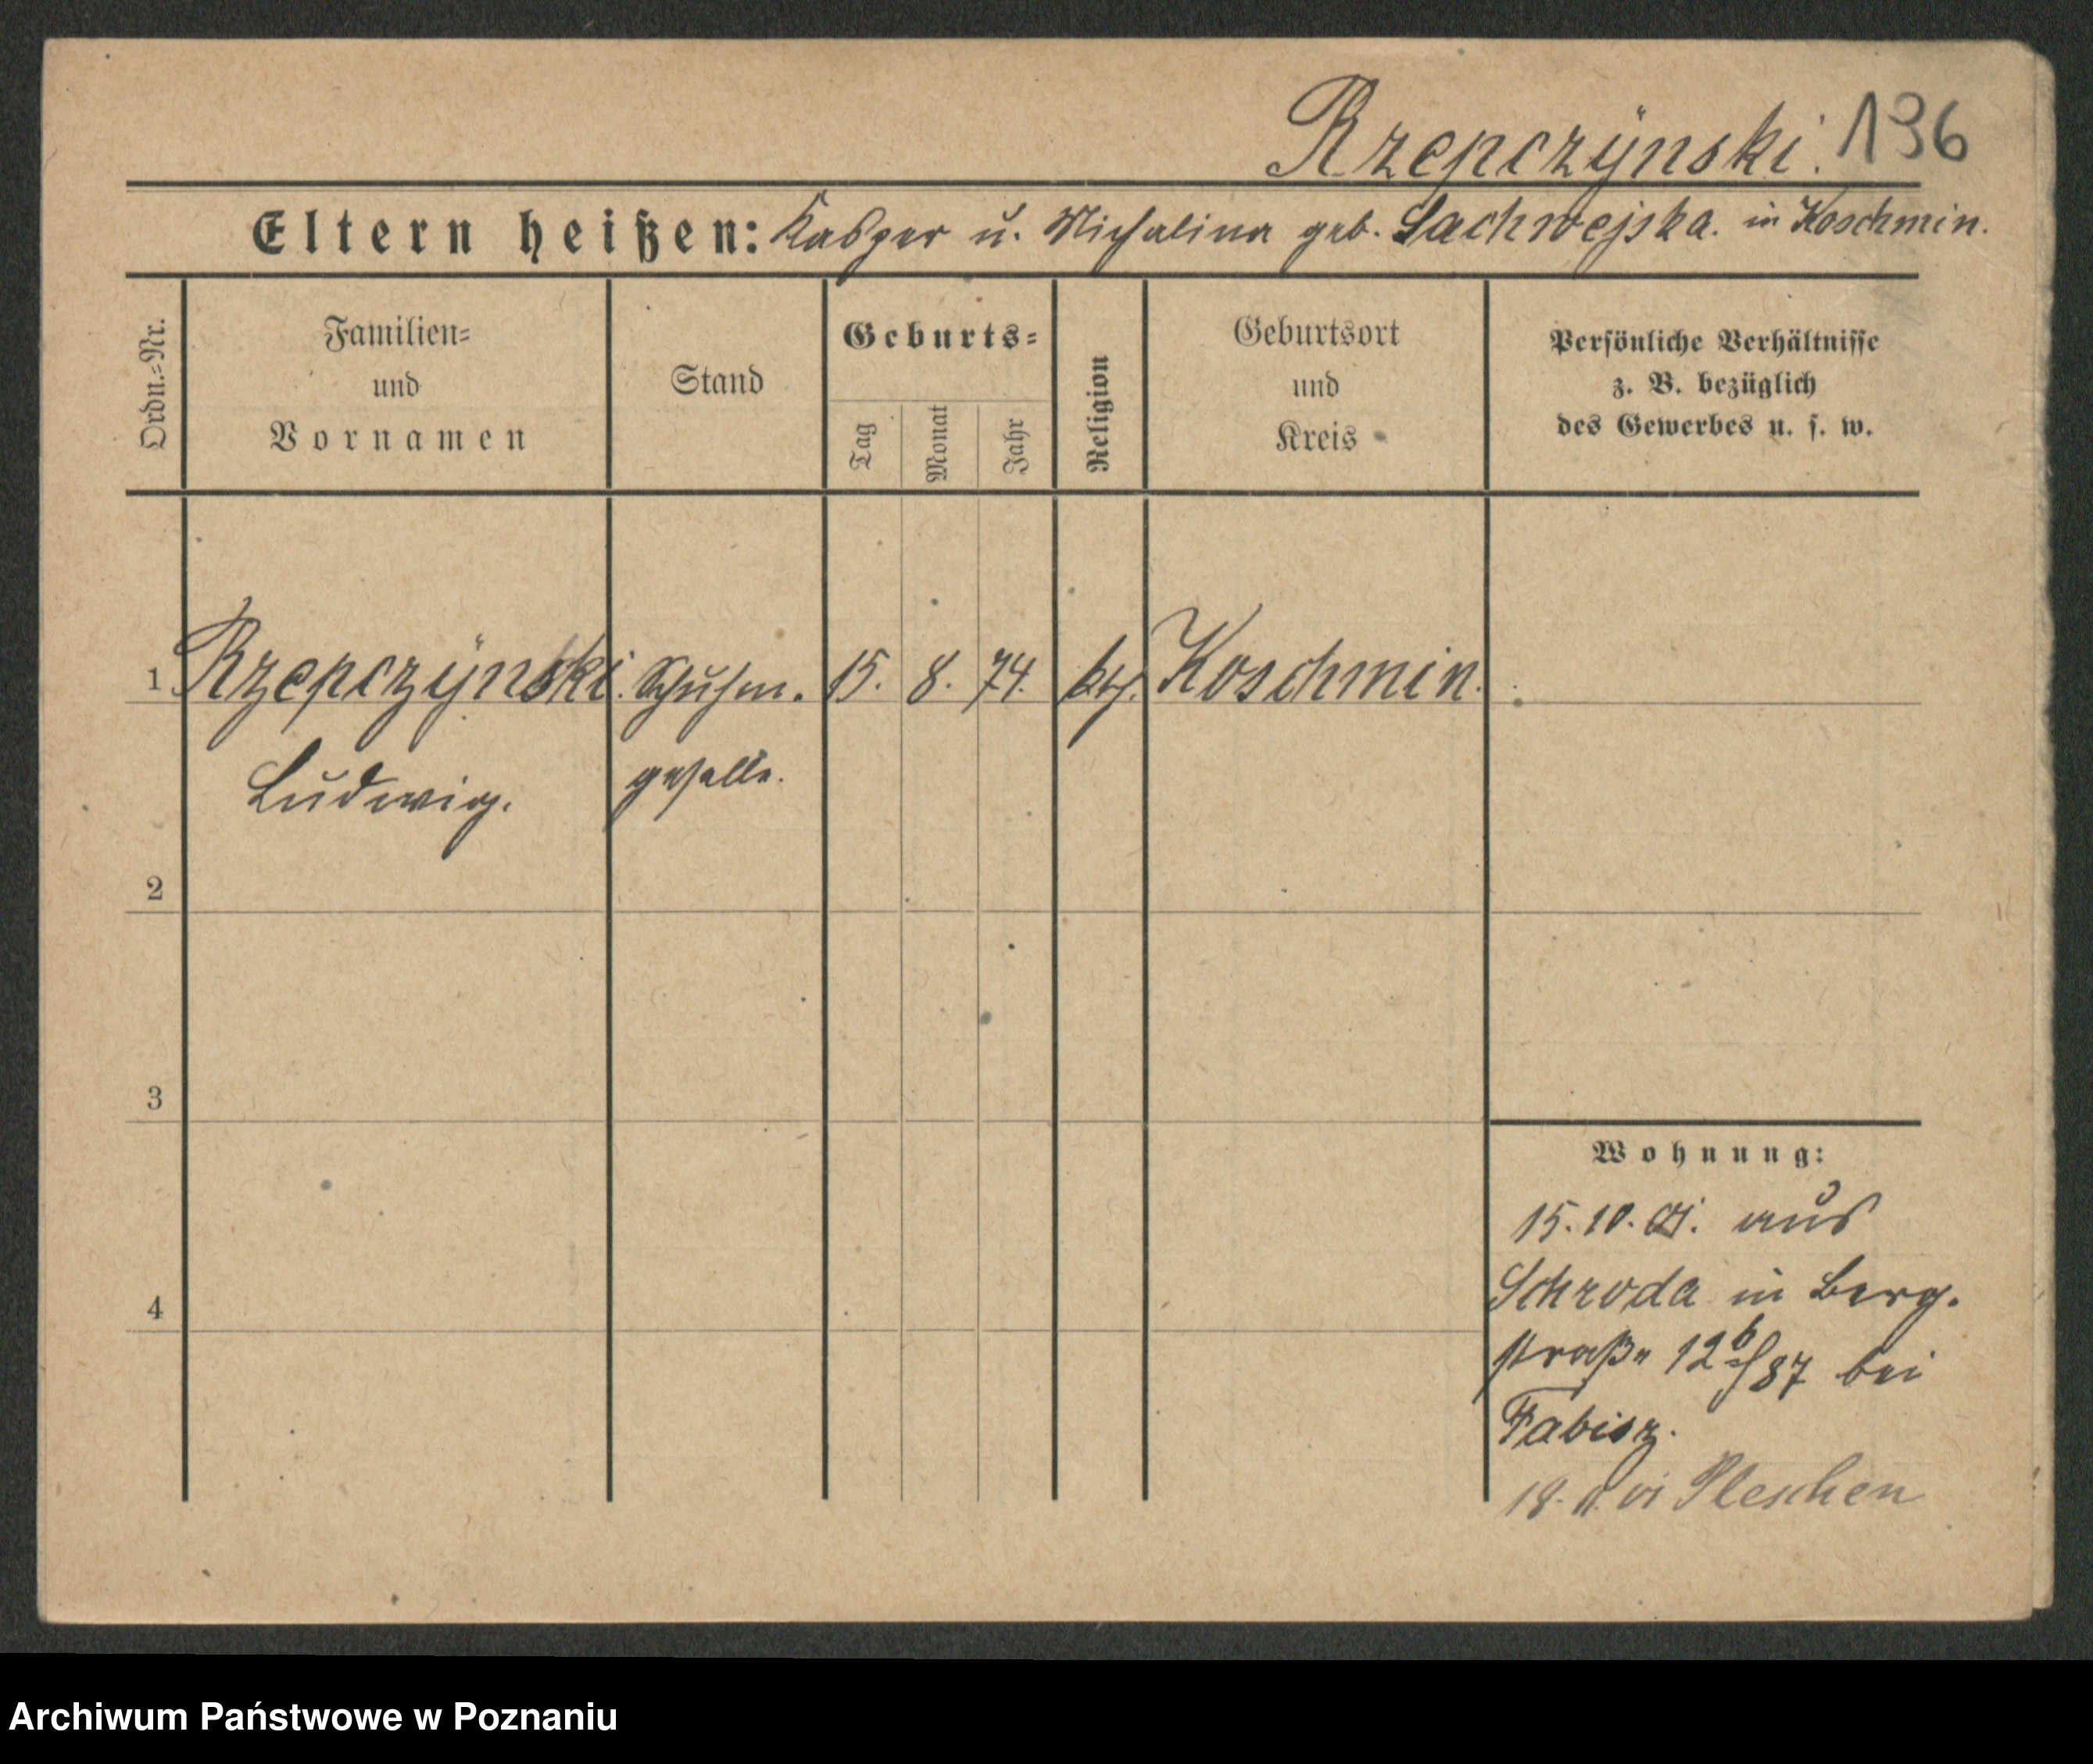 Rzepczÿnski. 136
Eltern heißen: Kasper u. Michalina geb. Sachwejska. in Koschmin.
Ordn.-Nr.
Familien-
und
Vornamen
Stand
Geburts-
Tag
Monat
Jahr
Religion
Geburtsort
und
Kreis
Persönliche Verhältnisse
z. B. bezüglich
des Gewerbes u. s. w.
1 Rzepczÿnski. Schuhm. 15. 8. 74. kth. Koschmin.
Ludwig. geselle.
2
3
4
Wohnung:
15. 10. 01. aus
Schroda in Berg-
straße 12 b/87 bei
Fabisz.
18. 11. 01 Pleschen
Archiwum Państwowe w Poznaniu